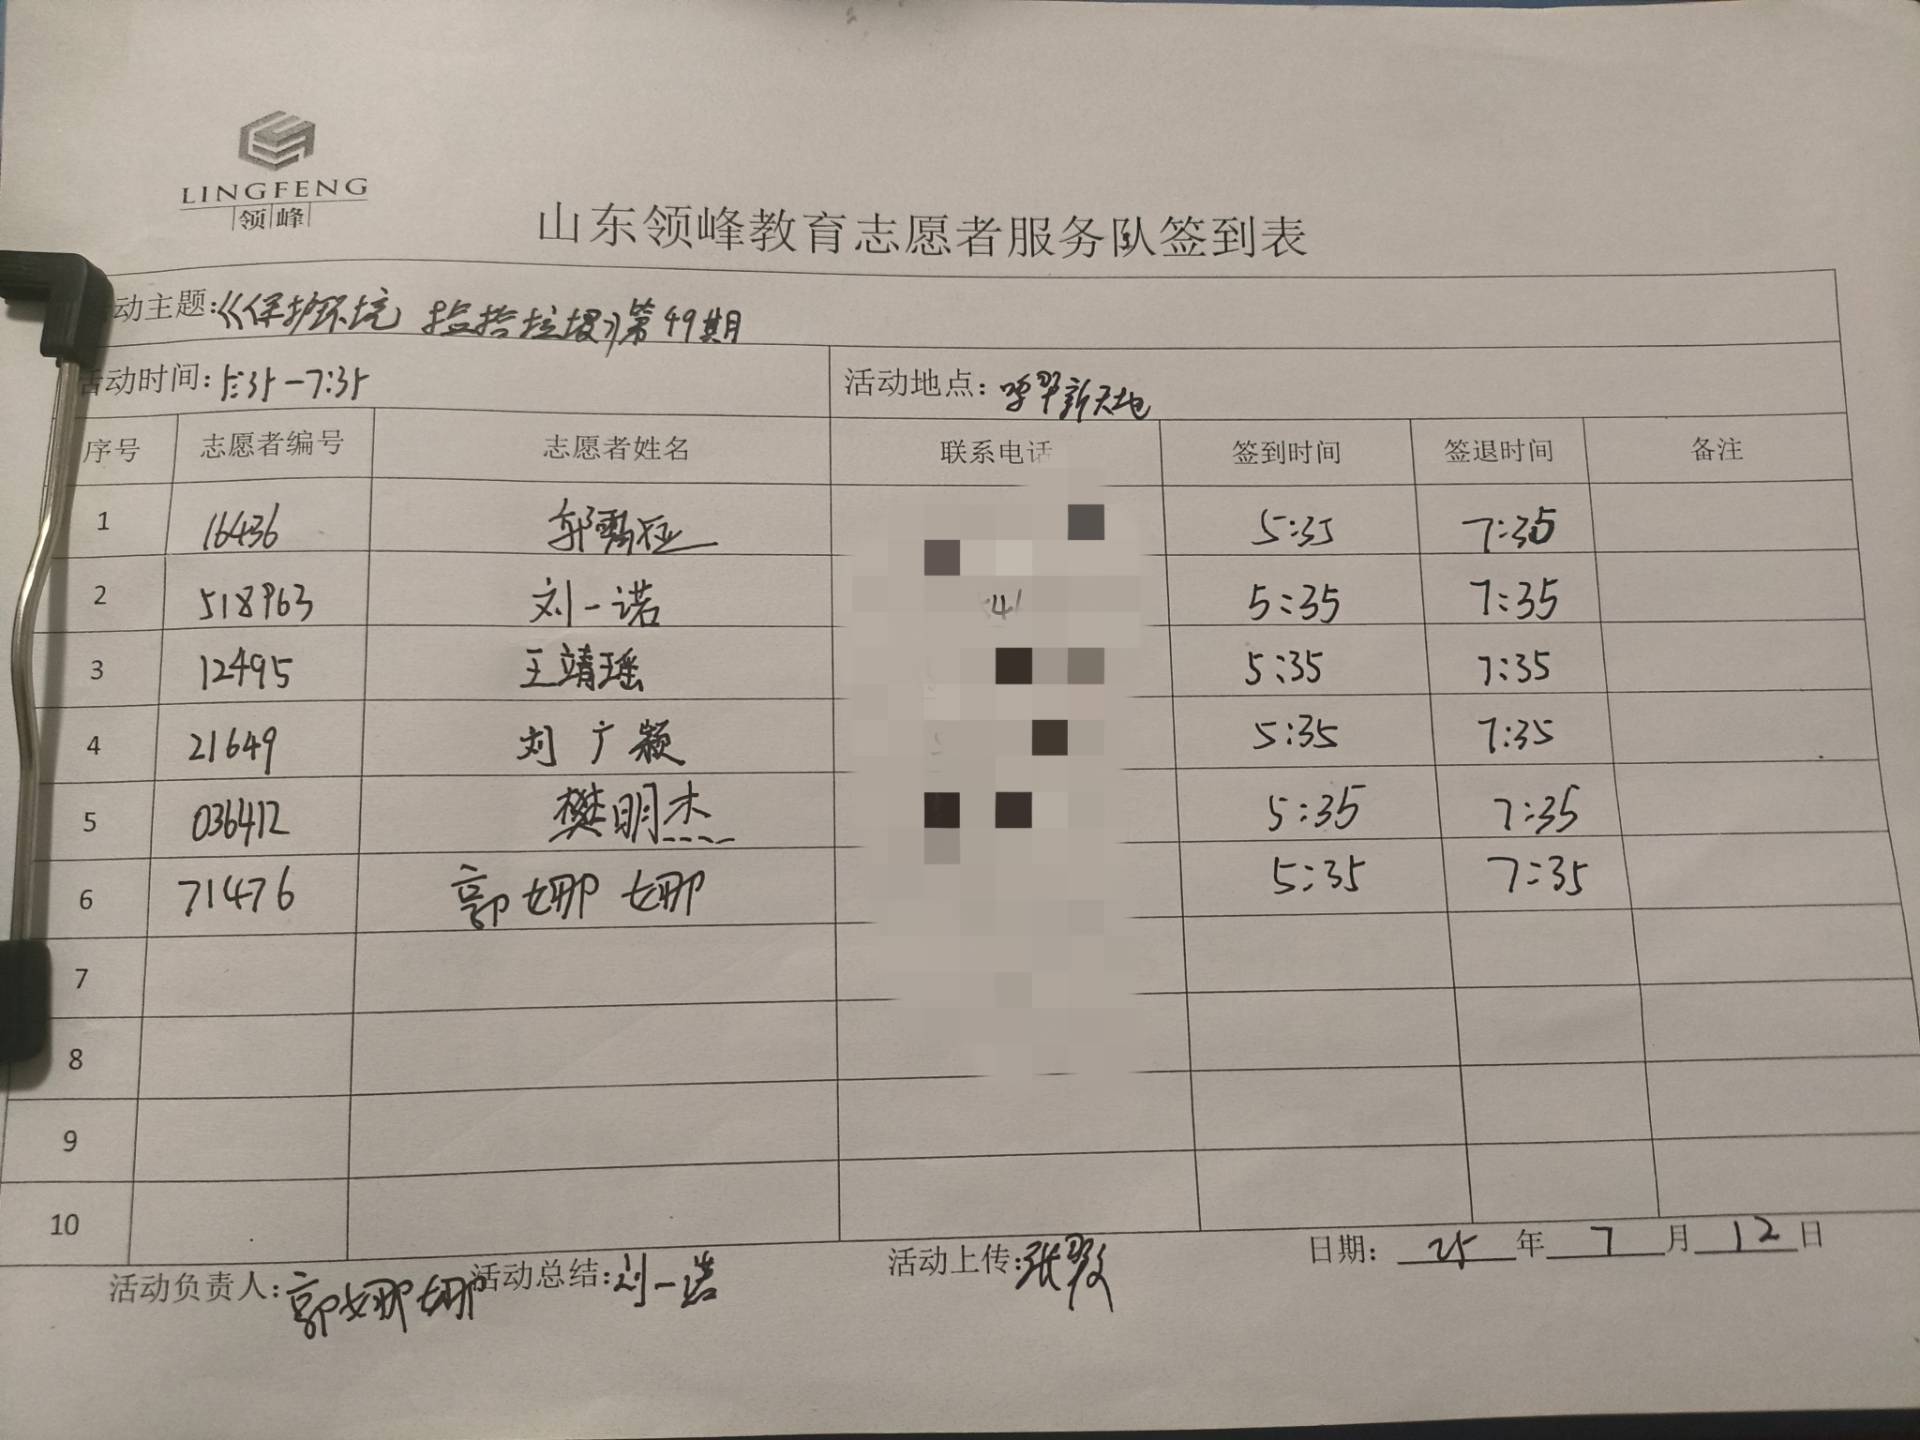 LINGFENG
领峰
山东领峰教育志愿者服务队签到表
动主题:《保护环境 捡拾垃圾》第49期
活动时间:5:35-7:35 活动地点: 新天地
序号 志愿者编号 志愿者姓名 联系电话 签到时间 签退时间 备注
1 16436 郭 5:35 7:35
2 518963 刘一诺 5:35 7:35
3 12495 王靖瑶 5:35 7:35
4 21649 刘广颖 5:35 7:35
5 036412 樊明杰 5:35 7:35
6 71476 郭娜娜 5:35 7:35
7
8
9
10
活动负责人:郭娜娜 活动总结:刘一诺 活动上传:张 日期: 25年7月12日